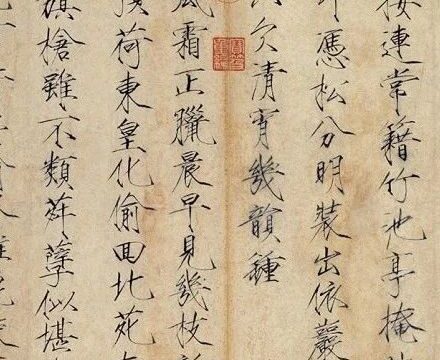 接連常籍竹池亭掩
憑松分明裝出依巖
欠清宵幾韻鍾
風霜正臘晨早見幾枝
荷東皇化偷囬北苑
旗槍雖不類荈孽似堪